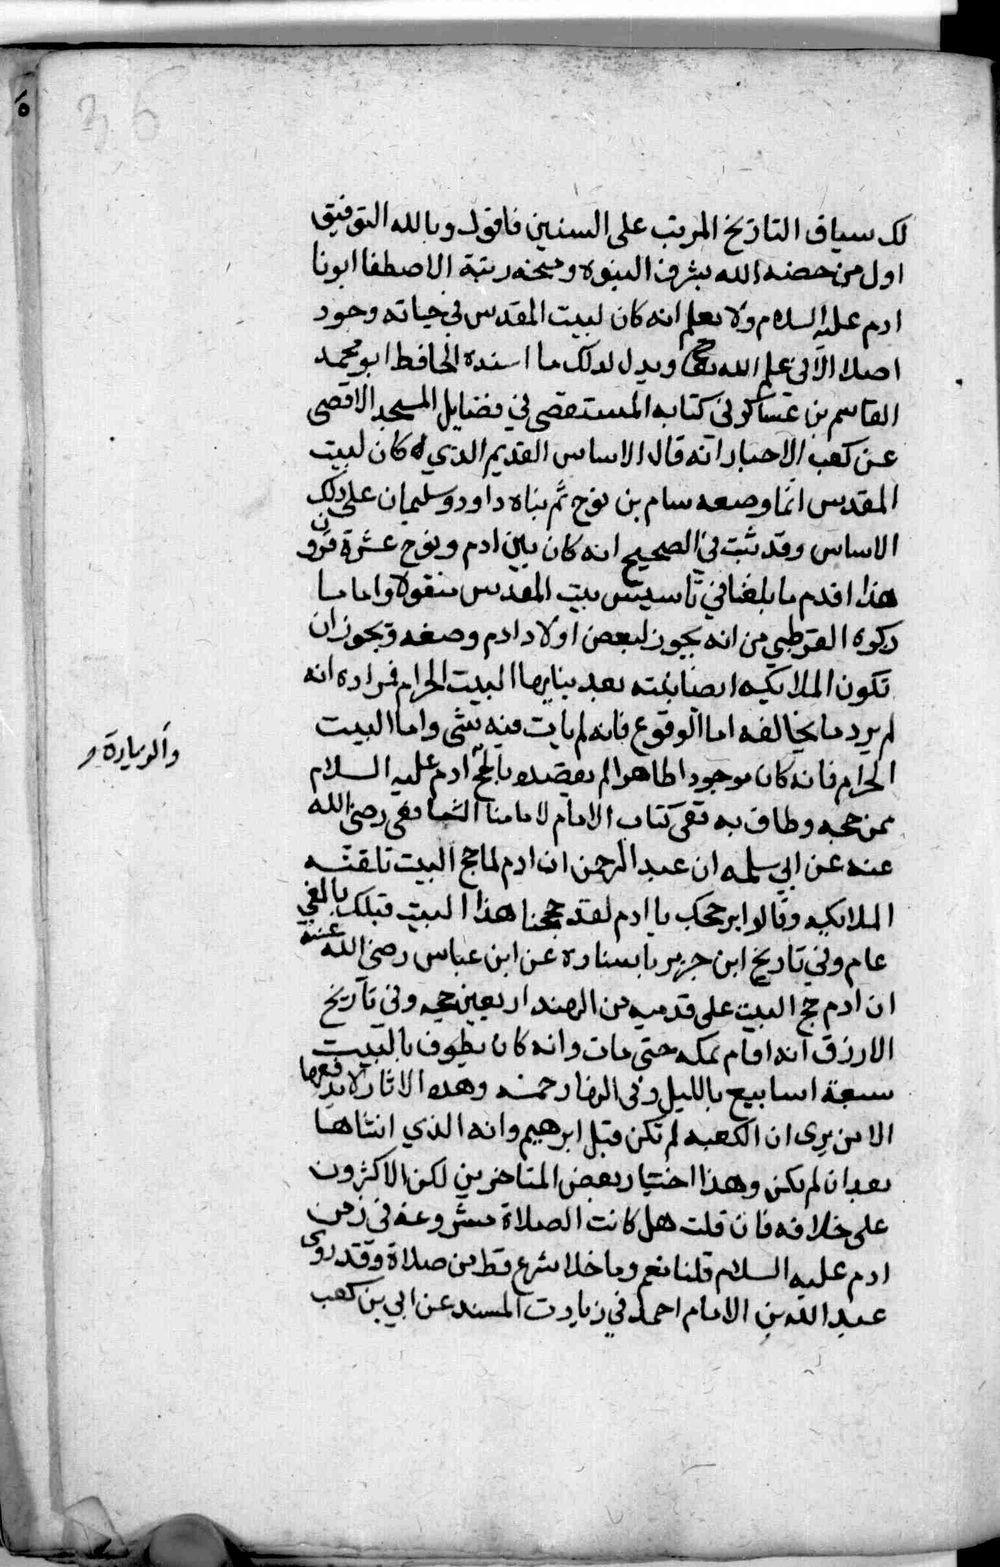 لك سياق التاريخ المرتب على السنين فاقول وبالله التوفيق
اول من خصه الله بشرف النبوة ومنحه رتبة الاصطفا ابونا
ادم عليه السلام ولا نعلم انه كان لبيت المقدس في حياته وجود
اصلا الا في علم الله تعا ويدل لذلك ما اسنده الحافظ ابو محمد
القاسم بن عساكر في كتابه المستقصى في فضايل المسجد الاقصى
عن كعب الاحبار انه قال الاساس القديم الذي كان لبيت
المقدس انما وضعه سام بن نوح ثم بناه داود وسليمان على ذلك
الاساس وقد ثبت في الصحيح انه كان بين ادم ونوح عشرة قرون
هذا اقدم ما بلغنا في تاسيس بيت المقدس منقولا واما ما
ذكره القرطبي من انه يجوز لبعض اولاد ادم وضعه ويجوز ان
تكون الملايكه ايضا بنته بعد بنايها البيت الحرام فمراده انه
لم يرد ما يخالفه اما الوقوع فانه لم يات فيه شي واما البيت
الحرام فانه كان موجودا ظاهرا لم يقصده بالحج ادم عليه السلام
والزيارة و
ممن حجه وطاف به ففي كتاب الامام لامامنا الشافعي رضي الله
عنه عن ابي سلمه ان عبد الرحمن ان ادم لما حج البيت تلقته
الملايكه وقالوا بر حجك يا ادم لقد حججنا هذا البيت قبلك بالفي
عام وفي تاريخ ابن جرير باسناده عن ابن عباس رضي الله عنه
ان ادم حج البيت على قدميه من الهند اربعين حجه وفي تاريخ
الازرقي انه اقام بمكه حتى مات وانه كان يطوف بالبيت
سبعة اسابيع بالليل وفي النهار خمسه وهذه الاثار لا يدفعها
الا من يرى ان الكعبه لم تكن قبل ابرهيم وانه الذي انشاها
بعد ان لم تكن وهذا اختيار بعض المتاخرين لكن الاكثرون
على خلافه فان قلت هل كانت الصلاة مشروعه في زمن
ادم عليه السلام قلنا نعم وما خلا شرع قط من صلاة وقد روى
عبد الله بن الامام احمد في زيادت المسند عن ابي بن كعب